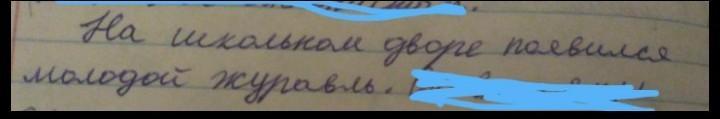 На школьном дворе появился
молодой журавль.